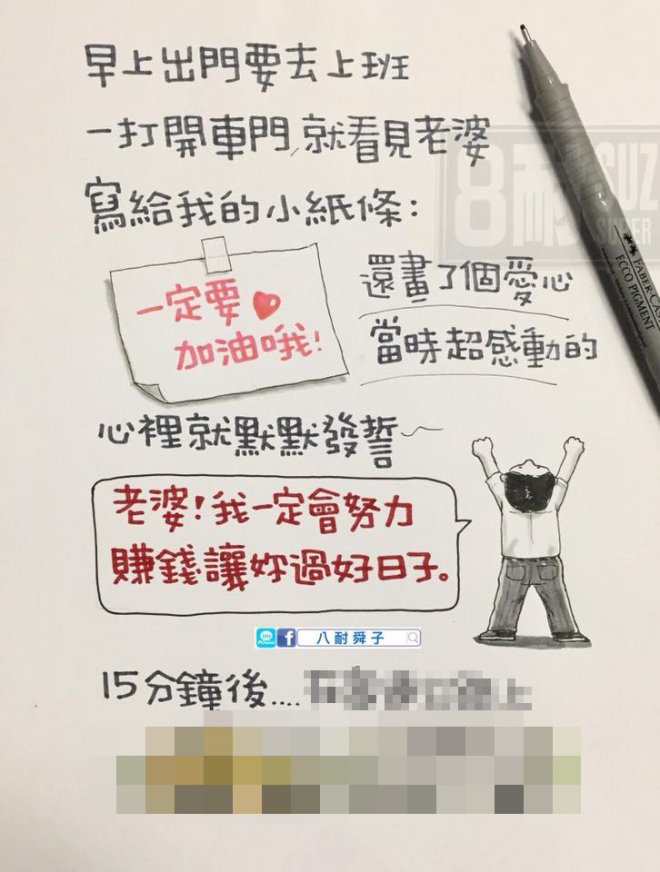 早上出門要去上班
一打開車門,就看見老婆
寫給我的小紙條:
一定要
加油哦!
還畫了個愛心
當時超感動的
心裡就默默發誓~
老婆!我一定會努力
賺錢讓妳過好日子。
八耐舜子
15分鐘後....
8耐 SUZ
SUPER
FABER-CAS
ECCO PIGMENT